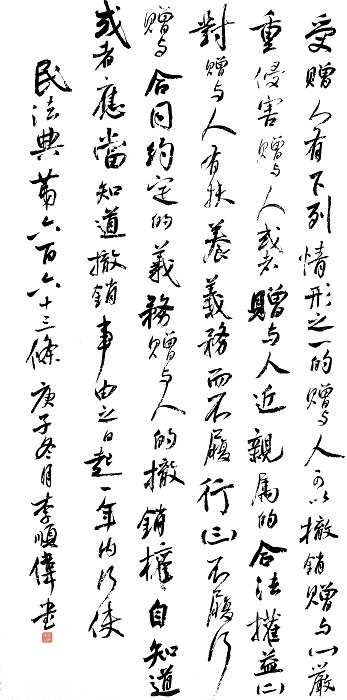 受贈人有下列情形之一的贈与人可以撤銷贈与(一)嚴
重侵害贈与人或者贈与人近親属的合法權益(二)
對贈与人有扶養義務而不履行(三)不履行
贈与合同約定的義務贈与人的撤銷權自知道
或者應當知道撤銷事由之日起一年内行使
民法典苐六百六十三條 庚子冬月李順偉書